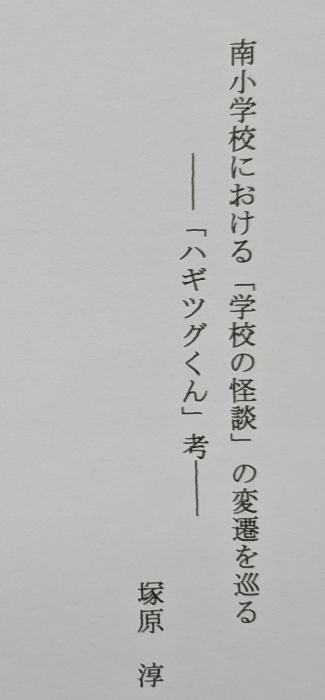 南小学校における「学校の怪談」の変遷を巡る
――「ハギツグくん」考――
塚原　淳